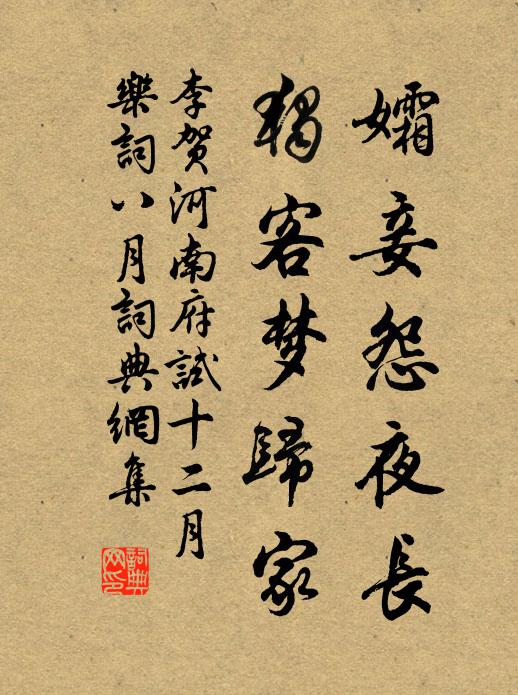 孀妾怨夜長
獨客梦歸家
李贺河南府試十二月
樂詞八月詞典網集
詞典网印